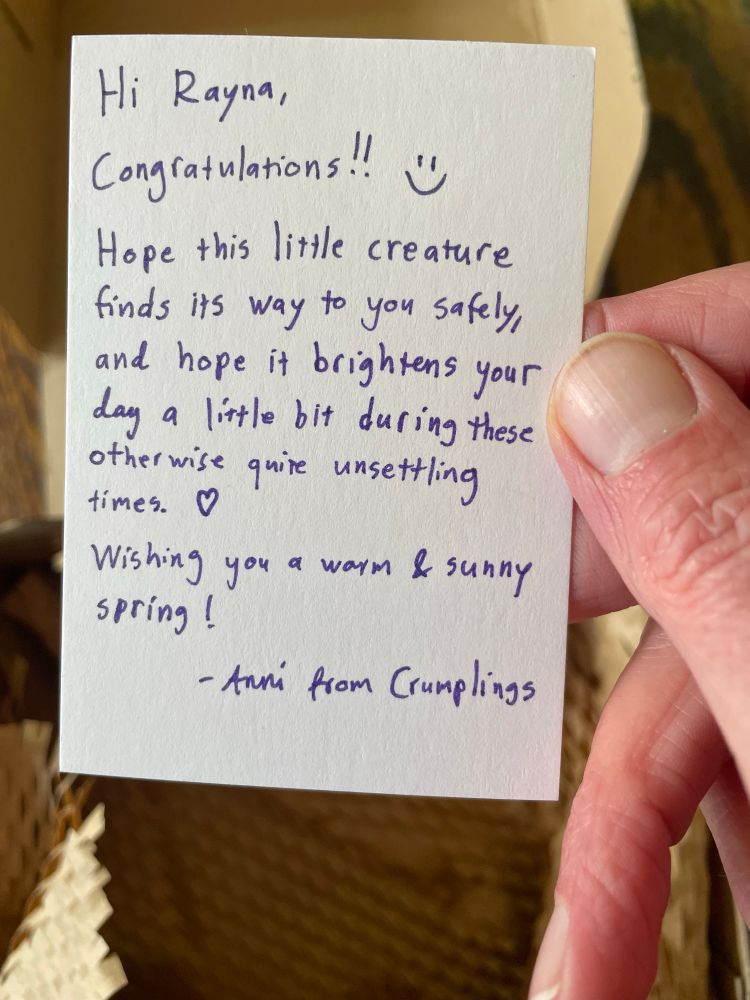 Hi Rayna,
Congratulations!!
Hope this little creature
finds its way to you safely,
and hope it brightens your
day a little bit during these
otherwise quite unsettling
times. ♡
Wishing you a warm & sunny
spring!
- Anni from Crumplings